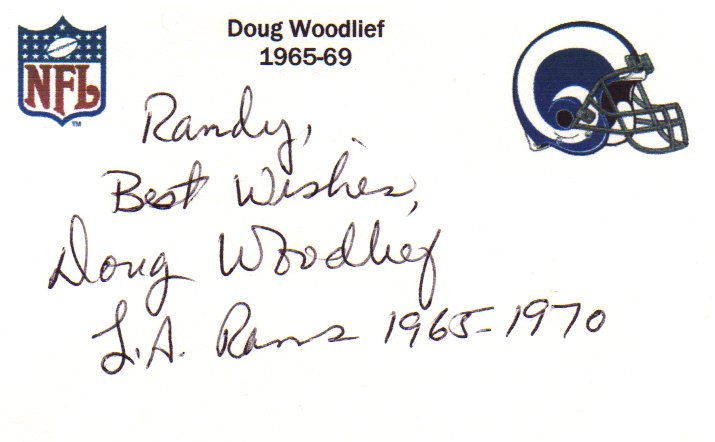 NFL
TM
Doug Woodlief
1965-69
Randy,
Best Wishes,
Doug Woodlief
L.A. Rams 1965-1970